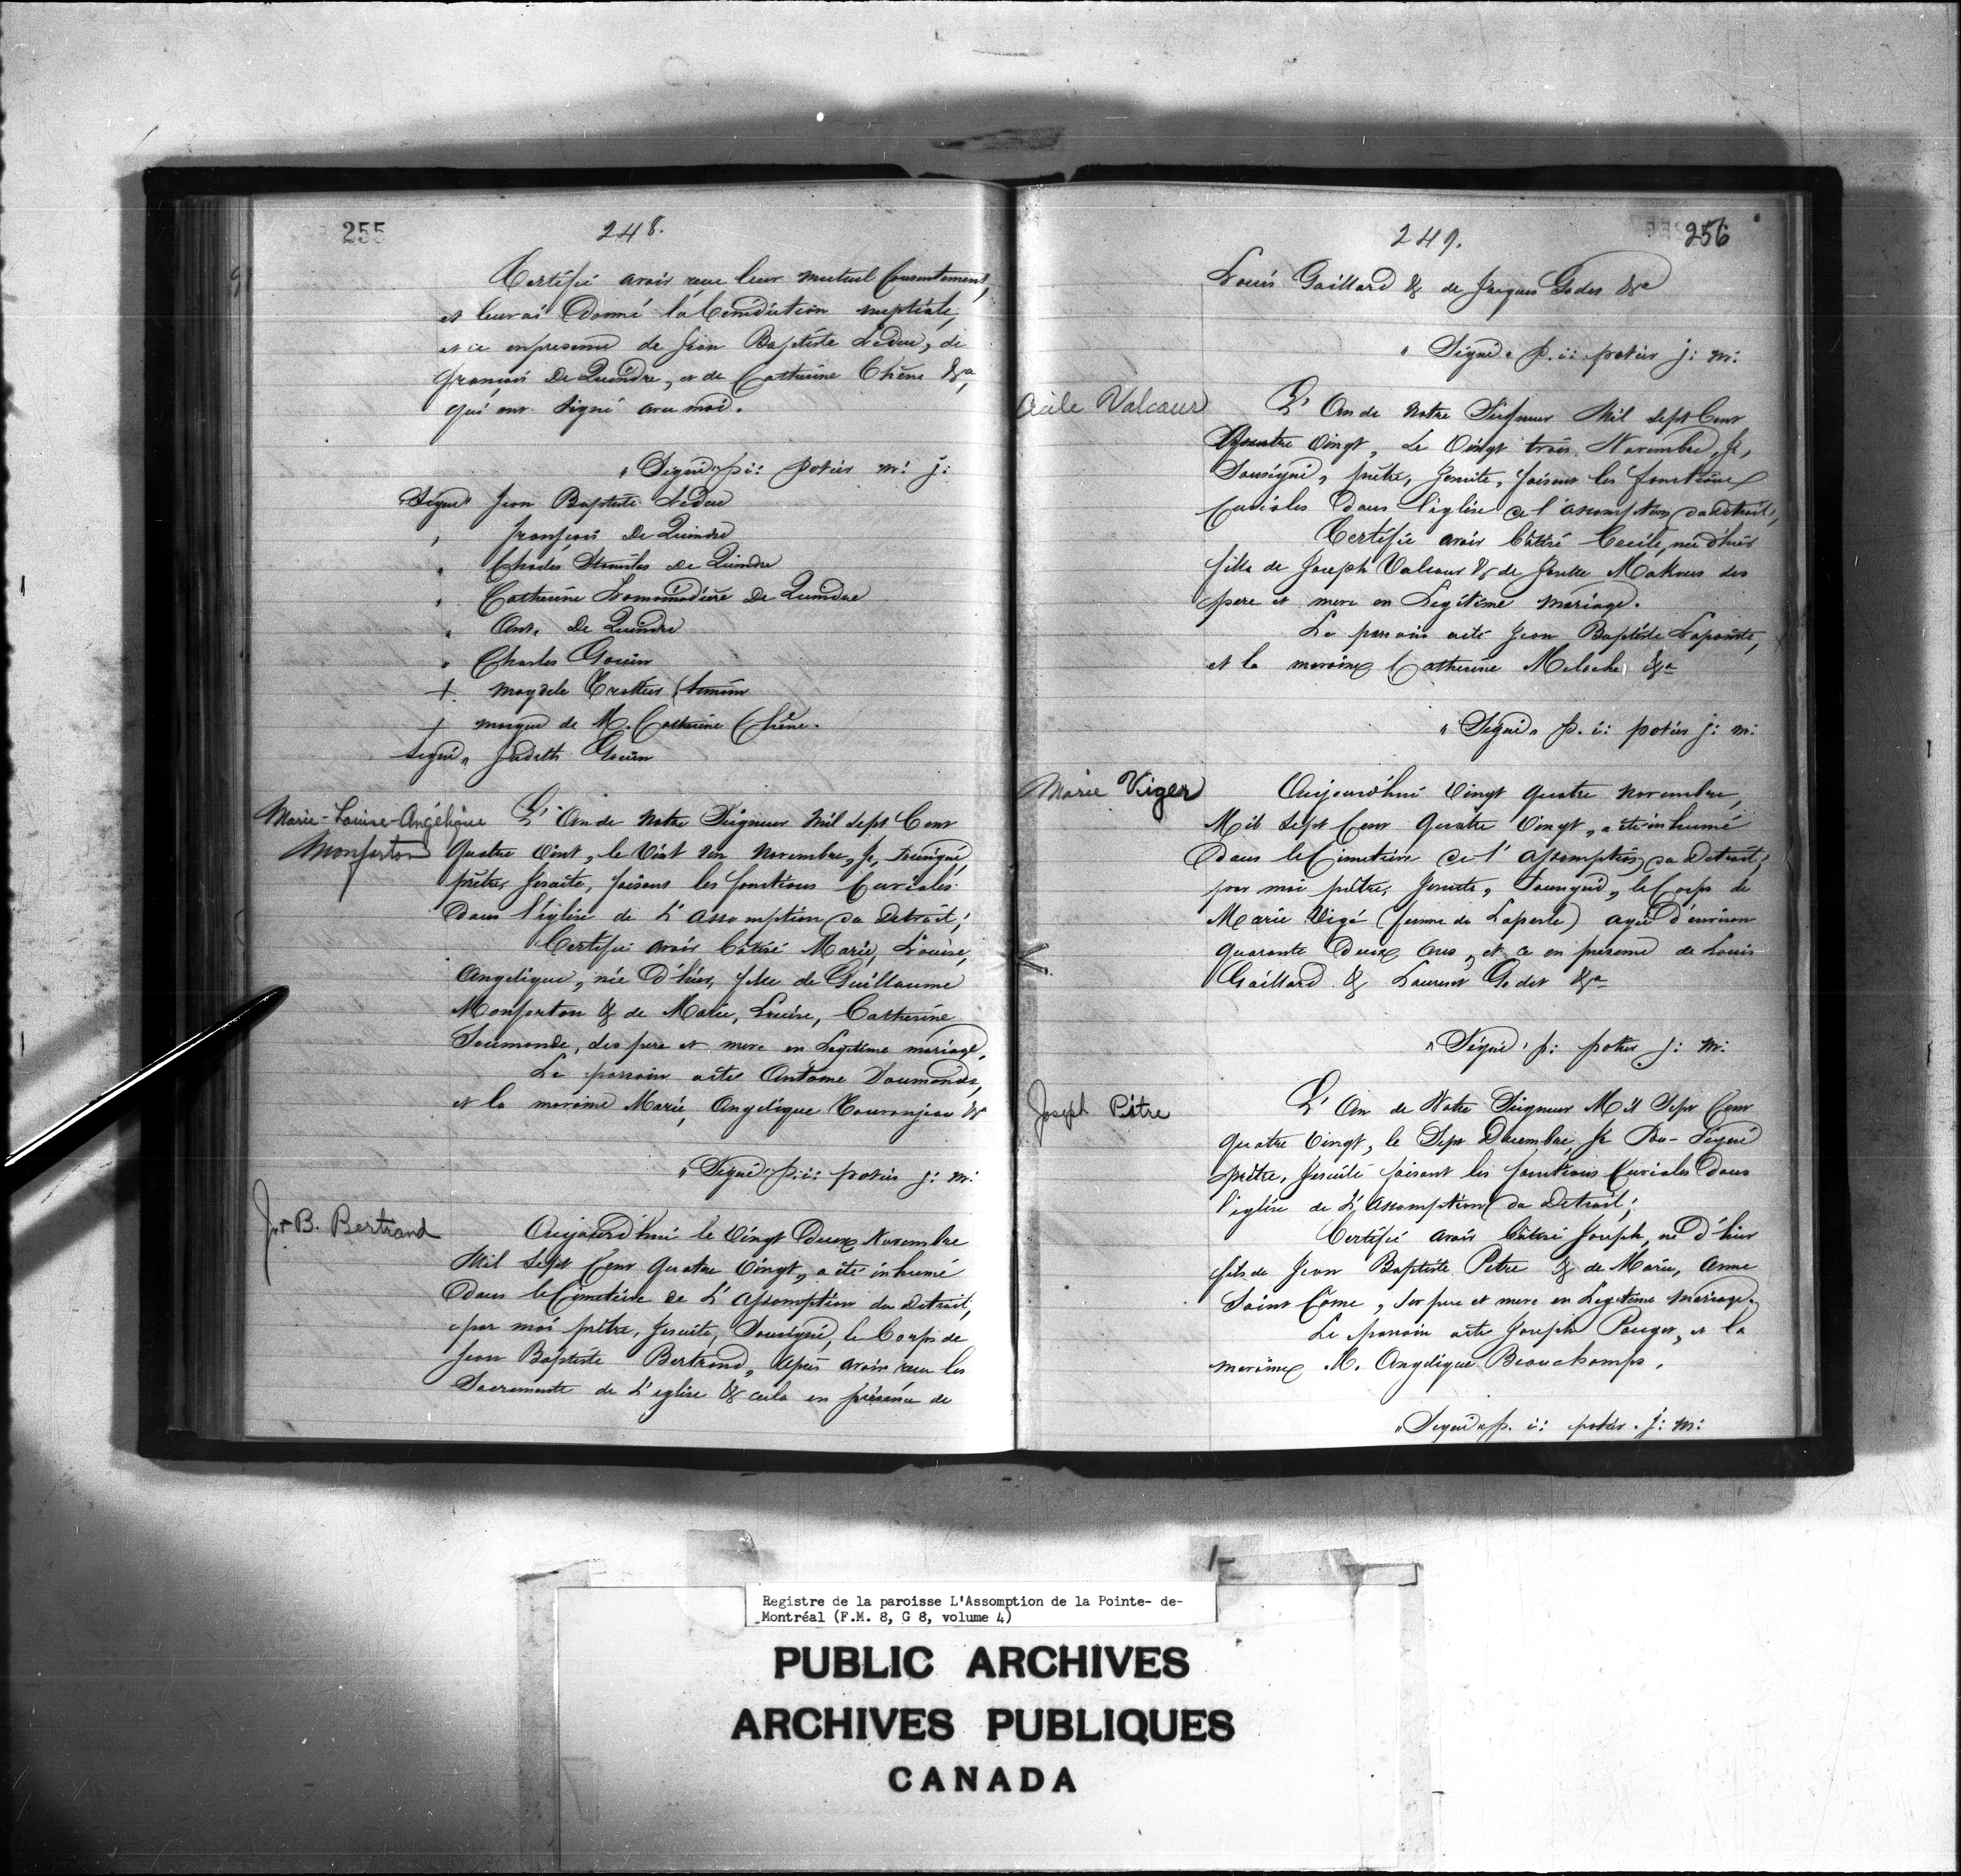 255
248.
Certifié avoir reçu leur mutuel Consentement,
et leur ai Donné la bénédiction nuptiale,
et ce en presence de Jean Baptiste Leduc, de
françois De Quindre, et de Catherine Chêne &a,
qui ont signé avec moi.
"Signé" p: i: potier m: j:
Signé" Jean Baptiste Leduc
" françois De Quindre
" Charles De Quindre
" Catherine De Quindre
" Ant. De Quindre
" Charles Gouin
+ magdele
+ marque de M. Catherine Chêne.
signé" Judith Gouin
Marie-Louise-Angélique
Monforton
L'An de Notre Seigneur Mil Sept Cent
Quatre Vint, le Vint un Novembre, Je, Sousigné,
prêtre, Jesuite, faisant les fonctions Curiales
Dans l'église de L'Assomption du Detroit;
Certifie avoir bâtisé Marie, Louise,
Angelique, née D'hier, fille de Guillaume
Monforton & de Marie, Louise, Catherine
Soumande, des pere et mere en Legitime mariage.
Le parrain a été Antoine
et la maraine Marie, Angelique &a
"Signé" p: i: potier j: m:
J. B. Bertrand
Aujourd'hui le Vingt Deux Novembre
Mil Sept Cent Quatre Vingt, a été inhumé
Dans le Cimetière de L'Assomption du Detroit,
par moi prêtre, Jesuite, Sousigné, le Corps de
Jean Baptiste Bertrand, après avoir reçu les
Sacrements de L'eglise & cela en présence de
249.
256
Louis Gaillard & de Jacques Godet &a
"Signé" p. i: potier j: m:
Cécile Valcour
L'An de Notre Seigneur Mil Sept Cent
Quatre Vingt, Le Vingt trois Novembre, Je,
Sousigné, prêtre, Jesuite, faisant les fonctions
Curiales Dans l'église de l'assomption du Detroit,
Certifie avoir bâtisé Cecile, née d'hier
fille de Joseph Valcour & de Josette des
pere et mere en Legitime mariage.
Le parrain a été Jean Baptiste Lapointe,
et la maraine Catherine Meloche &a
"Signé" p. i: potier j: m:
Marie Viger
Aujourd'hui Vingt quatre Novembre,
Mil Sept Cent Quatre Vingt, a été inhumé
Dans le Cimetière de l'Assomption du Detroit,
par moi prêtre, Jesuite, Sousigné, le Corps de
Marie Vigé (femme de Laperle) agée D'environ
quarante Deux Ans, et ce en présence de Louis
Gaillard & Laurent Godet &a
"Signé" p: potier j: m:
Joseph Pitre
L'An de Notre Seigneur Mil Sept Cent
Quatre Vingt, le Sept Decembre, Je Sou-Signé
prêtre, Jesuite faisant les fonctions Curiales Dans
l'eglise de L'Assomption du Detroit;
Certifie avoir bâtisé Joseph, né D'hier
fils de Jean Baptiste Petre & de Marie, Anne
Saint Côme, des pere et mere en Legitime mariage.
Le parrain a été Joseph Pouget, et la
maraine M. Angelique Beauchamp.
"Signé" p. i: potier. j: m:
Registre de la paroisse L'Assomption de la Pointe- de-
Montréal (F.M. 8, G 8, volume 4)
PUBLIC ARCHIVES
ARCHIVES PUBLIQUES
CANADA